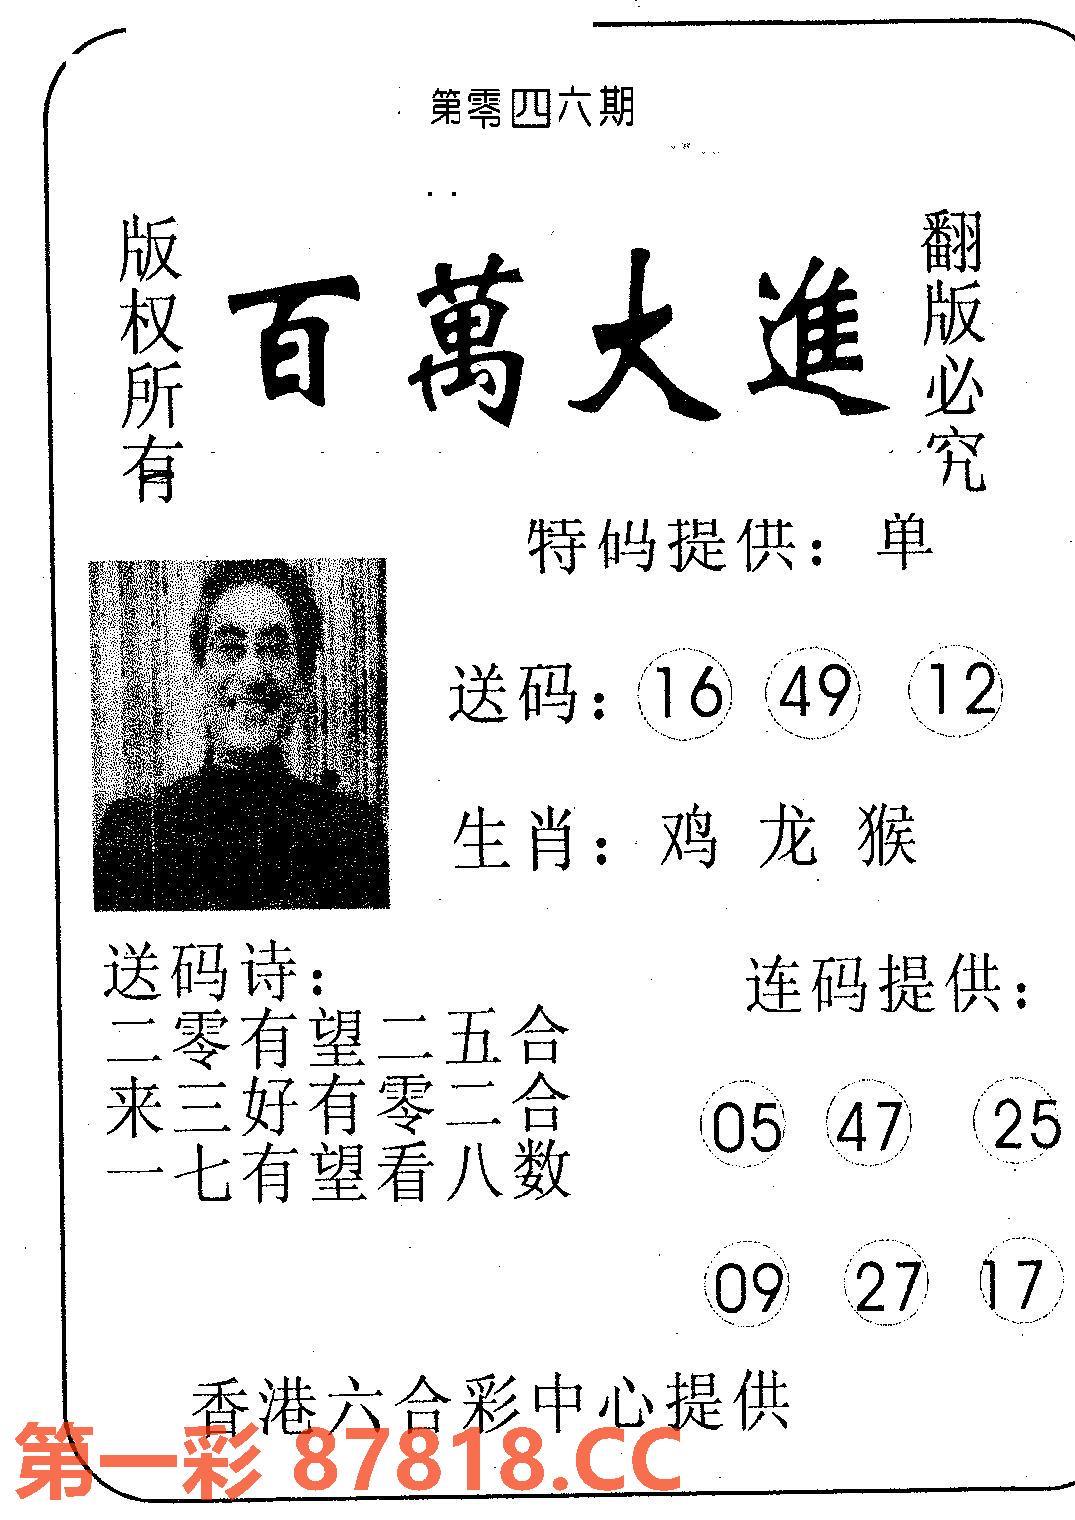 第零四六期
版权所有
百萬大進
翻版必究
特码提供：单
送码：16 49 12
生肖：鸡 龙 猴
送码诗：
二零有望二五合
来三好有零二合
一七有望看八数
连码提供：
05 47 25
09 27 17
香港六合彩中心提供
第一彩 87818.CC